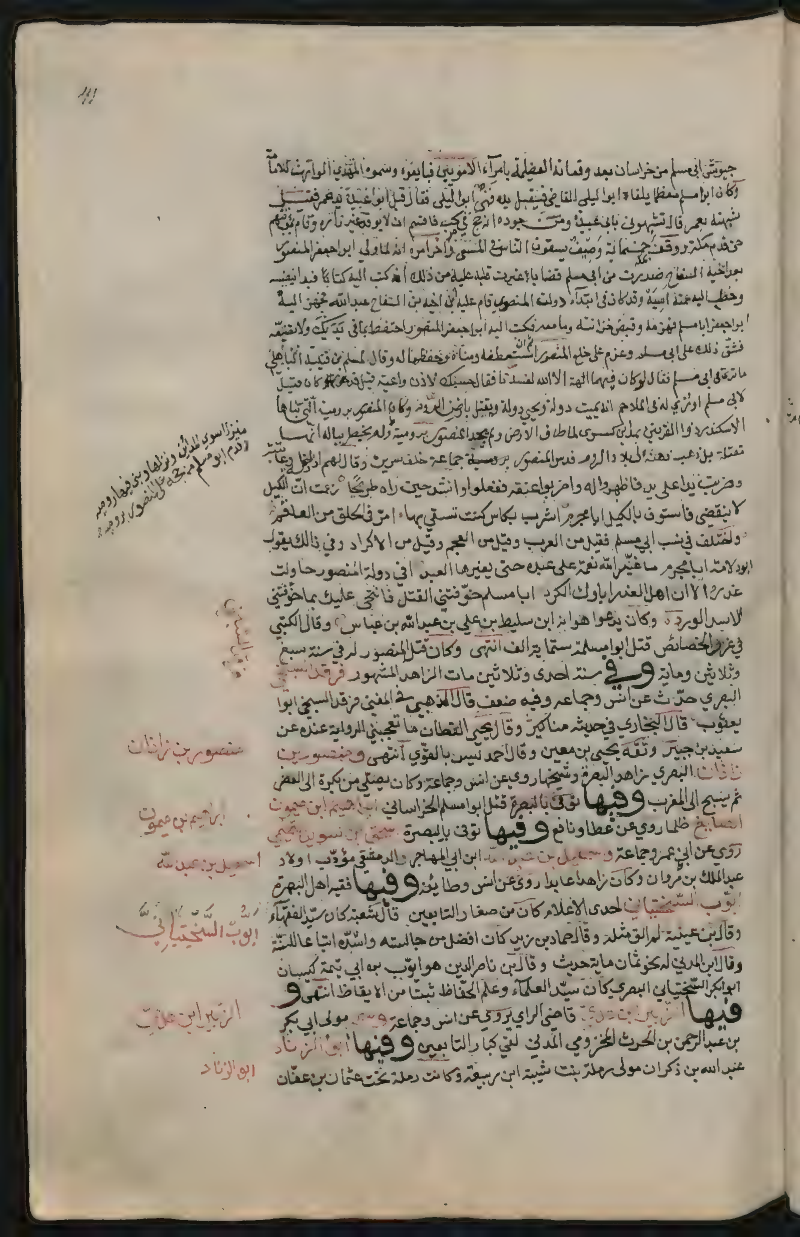 جيوش ابي مسلم من خراسان بعد وقعاته العظيمة بامرآء الامويين فبايعوه وسموه المهدي الوارث للاما
وكان ابو مسلم معظما يلقاه ابن ابي ليلى القاضي فيقبل يده فنهي ابن ابي ليلى فقال قبل ابو عبيدة يد عمر فقيل
شبهته بعمر قال تشبهوني بابي عبيدة ومن جوده انه حج في ركب فاقسم ان لا يوقد غيره ناره وقام بمؤنتهم
حتى قدم مكة ووقف خمسمائة وصيف يسقون الناس في المسعى وآخر امره انه لما ولي ابو جعفر المنصور
بعد اخيه السفاح صدرت من ابي مسلم قضايا غيرت قلبه عليه من ذلك انه كتب اليه كتابا فبدأ بنفسه
وخطب اليه عمته آسية وقد كان في ابتداء دولة المنصور قام عليه ابن اخيه بن السفاح عبد الله فجهز اليه
ابو جعفر ابا مسلم فهزمه وقبض خزانته وما معه فكتب اليه ابو جعفر المنصور احتفظ بما في يديك ولا تضيعه
فشق ذلك على ابي مسلم وعزم على خلع المنصور ثم استعطفه ومناه وقال لمسلم بن قتيبة الباهلي
ما ترى في ابي مسلم فقال لو كان فيهما الهة الا الله لفسدتا فقال حسبك لاذن واعية
لابي مسلم او نرى له في الملاحم انه يميت دولة ويحيي دولة ويقتل بارض الروم وكان المنصور برومية التي بناها
الاسكندر ذو القرنين لما طاف الارض ولم يجد المنصور برومية ولم يخطر بباله انها
تقتله بل ذهب وهمه الى بلاد الروم فدس المنصور برومية جماعة خلف سرير وقال لهم اذا دخل وعاتبته
وضربت يدا على يد فاظهروا له واضربوا عنقه ففعلوا وانشد حين رآه طريحا زعمت ان الكيل
لا ينقضي فاستوف بالكيل ابا مجرم اشرب بكاس كنت تسقي بها امر في الحلق من العلقم
واختلف في نسب ابي مسلم فقيل من العرب وقيل من العجم وقيل من الاكراد وفي ذلك يقول
ابو دلامة ابا مجرم ما غير الله نعمة على عبده حتى يغيرها العبد افي دولة المنصور حاولت
غدره الا ان اهل الغدر اباؤك الكرد ابا مسلم خوفتني القتل فانتحى عليك بما خوفتني
الاسد الورد وكان يدعوا هو انه ابن سليط بن علي بن عبد الله بن عباس وقال الكتبي
في غرر الخصائص قتل ابو مسلمة ستماية الف انتهى وكان قتل المنصور له في سنة سبع
وثلاثين وماية وفي سنة احدى وثلاثين مات الزاهد المشهور فرقد السبخي
البصري حدث عن انس وجماعه وفيه ضعف قال الذهبي في المغني فرقد السبخي ابوا
يعقوب قال البخاري في حديثه مناكير وقال يحيى القطان ما تعجبني الرواية عنه عن
سعيد بن جبير وثقه يحيى بن معين وقال احمد ليس بالقوي انتهى ومنصور بن
زاذان البصري زاهد البصرة وشيخها روي عن انس وجماعة وكان يصلي من بكرة الى العصر
ثم يسبح الى المغرب وفيها توفي بالبصرة قتل ابو مسلم الخراساني ابراهيم ابن ميمون
الصايغ ظلما روى عن عطا ونافع وفيها توفى بالبصرة اسحق بن سويد التميمي
روي عن ابي عمر وجماعة واسمعيل بن عبيد الله ابن ابي المهاجر الدمشقي مؤدب اولاد
عبد الملك بن مروان وكان زاهدا عابدا روى عن انس وطايفة وفيها فقيه اهل البصرة
ايوب السختياني احدى الاعلام كان من صغار التابعين قال شعبة كان سيد الفقهآء
وقال بن عيينة لم الق مثله وقال حماد بن زيد كان افضل من جالسته واشده اتباعا للسنة
وقال ابن المديني له نحو ثمان ماية حديث وقال بن ناصر الدين هو ايوب بن ابي تيمة كيسان
ابو بكر السختياني البصري كان سيد العلمآء وعلم الحفاظ ثبتا من الايقاظ انتهى و
فيها الزبير بن عدي قاضي الراي يروي عن انس وجماعة وسمي مولى ابي بكر
بن عبد الرحمن بن الحرث المخزومي المدني لقي كبار التابعين وفيها ابو الزناد
عبد الله بن ذكوان مولى رملة بنت شيبة ابن ربيعة وكانت رملة تحت عثمان بن عفان
فرقد السبخي
منصور بن زاذان
ابراهيم بن ميمون
اسمعيل بن عبد الله
ايوب السختياني
الزبير ابن عدي
ابو الزناد